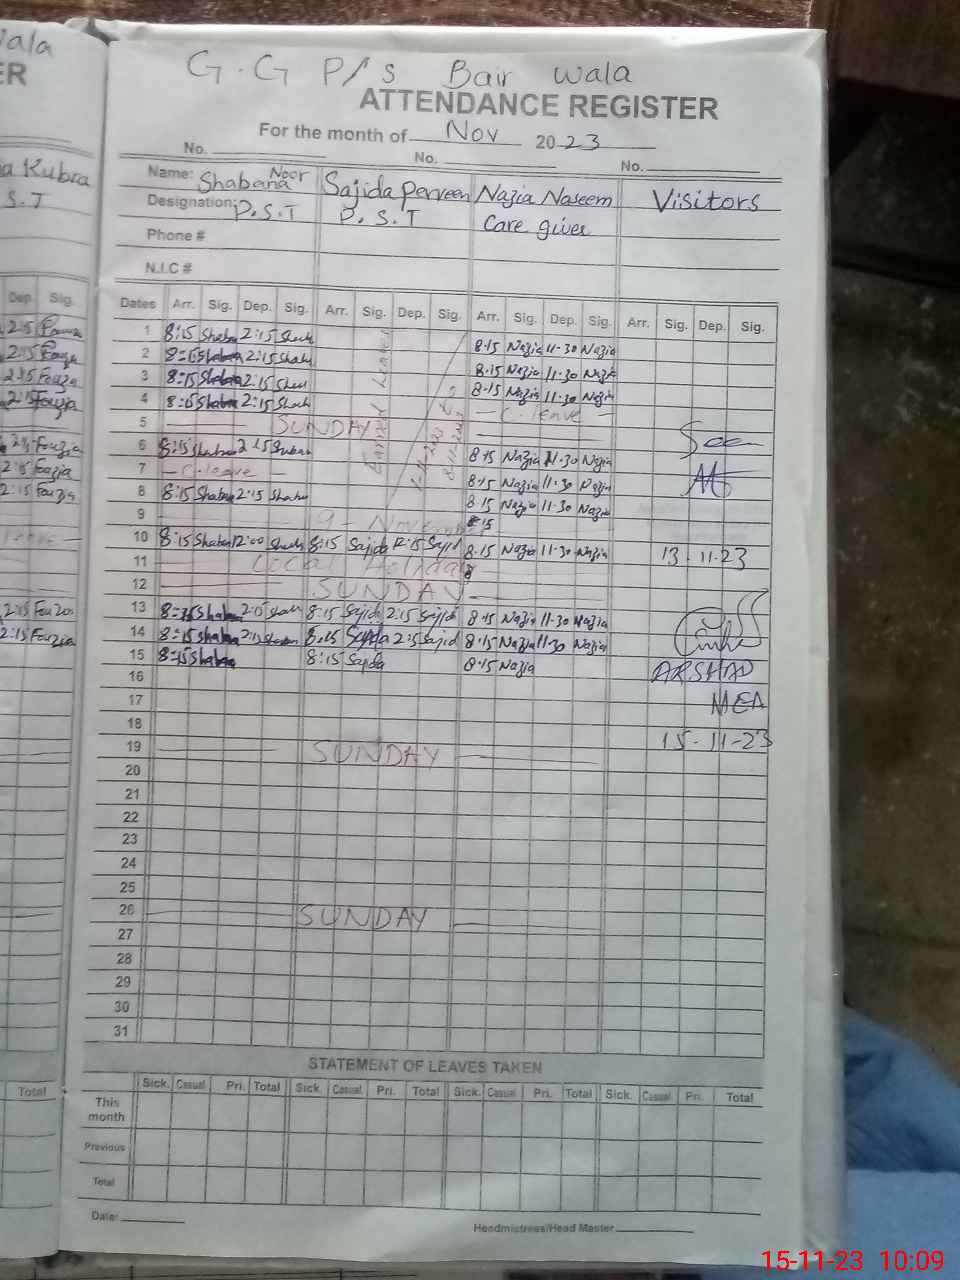 G.G P/S Bair wala
ATTENDANCE REGISTER
For the month of Nov 2023
No. No. No.
Name: Shabana Noor Sajida Perveen Nazia Naseem Visitors
Designation: P.S.T P.S.T Care giver
Phone #
N.I.C #
Dates Arr. Sig. Dep. Sig. Arr. Sig. Dep. Sig. Arr. Sig. Dep. Sig. Arr. Sig. Dep. Sig.
1 8:15 Shaba 2:15 Shab 8.15 Nazia 11.30 Nazia
2 8=15 Shaba 2:15 Shab 8.15 Nazia 11.30 Nazia
3 8=15 Shaba 2:15 8.15 Nazia 11.30 Nazia
4 8=15 Shaba 2:15 Shab C. leave
5 SUNDAY
6 8:15 Shaba 2:15 8.15 Nazia 11.30 Nazia
7 C. leave 8.15 Nazia 11.30 Nazia
8 8:15 Shaba 2:15 Shaba 8.15 Nazia 11.30 Nazia
9 9 - November 8.15
10 8:15 Shaba 12:00 8:15 Sajida 12:15 Sajid 8.15 Nazia 11.30 Nazia 13.11.23
11 Local Holiday
12 SUNDAY
13 8=15 Shaba 2:15 Shab 8:15 Sajida 2:15 Sajid 8.15 Nazia 11.30 Nazia
14 8=15 Shaba 2:15 8:15 Sajida 2:15 Sajid 8.15 Nazia 11.30 Nazia
15 8=15 Shaba 8:15 Sajida 8.15 Nazia ARSHAD
16
17 MEA
18
19 SUNDAY 15-11-23
20
21
22
23
24
25
26 SUNDAY
27
28
29
30
31
STATEMENT OF LEAVES TAKEN
Sick. Casual Pri. Total Sick. Casual Pri. Total Sick. Casual Pri. Total Sick. Casual Pri. Total
This month
Previous
Total
Date:
Headmistress/Head Master
wala
ER
Kubra
S.T
Dep Sig.
2:15 Fouzia
2:15 Fouzia
2:15 Fouzia
2:15 Fouzia
2:15 Fouzia
2:15 Fouzia
2:15 Fouzia
2:15 Fouzia
2:15 Fouzia
Total
15-11-23 10:09